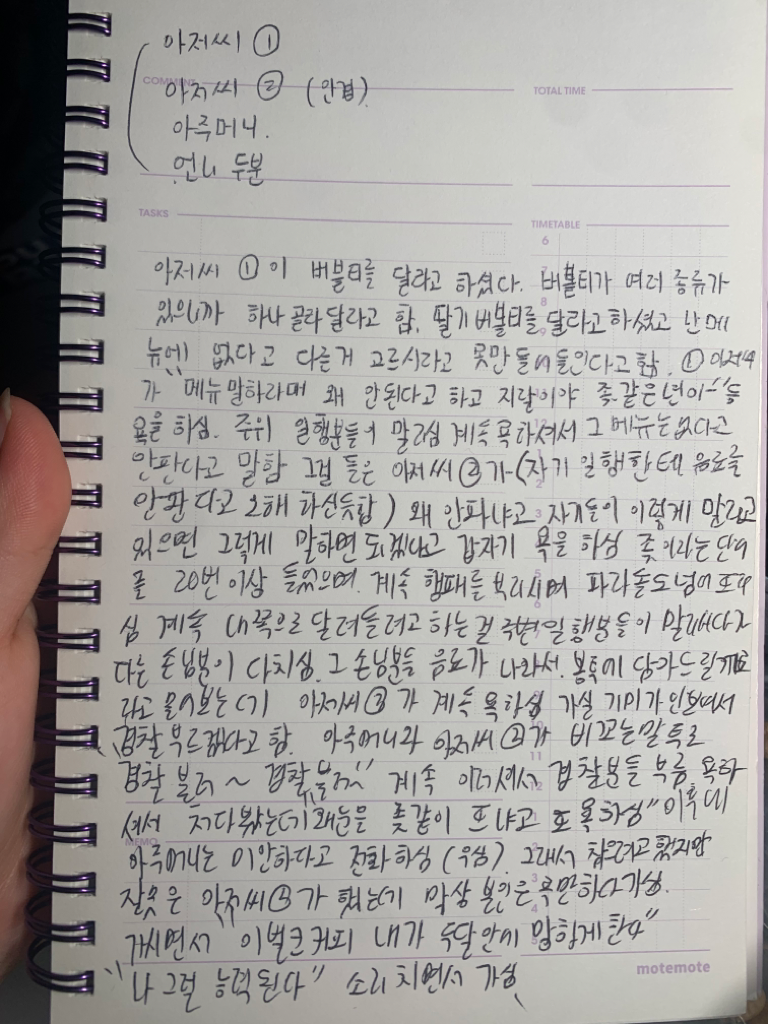 아저씨 ①
COMMENT
아저씨 ② (안경)
TOTAL TIME
아주머니.
언니 두분
TASKS
TIMETABLE
6
아저씨 ①이 버블티를 달라고 하셨다. 버블티가 여러 종류가
있으니까 하나 골라달라고 함. 딸기버블티를 달라고하셨고 난 메
뉴에 없다고 다른거 고르시라고 못만들어들인다고함. ① 아저씨
가 "메뉴말하라며 왜 안된다고 하고 지랄이야 좆같은년이-"등
욕을 하심. 주위 일행분들이 말리심 계속 욕하셔서 그 메뉴는없다고
안판다고 말함 그걸 들은 아저씨②가-(자기 일행한테 음료를
안판다고 오해 하신듯함) 왜 안파냐고 자기들이 이렇게 말리고
있으면 그렇게 말하면 되겠냐고 갑자기 욕을 하심 좆이라는단어
를 20번이상 들었으며. 계속 행패를 부리시며 파라솔도 넘어
심 계속 내쪽으로 달려들려고 하는걸 주변일행분들이 말리다
다른 손님분이 다치심. 그 손님분들 음료가 나와서. 봉투에 담아드릴까요
라고 물어보는데 아저씨②가 계속 욕하심 가실 기미가 안보여서
경찰부르겠다고 함. 아주머니와 아저씨②가 비꼬는말투로
"경찰 불러~ 경찰불러~" 계속 이러셔서 경찰분들 부름 욕하
셔서 쳐다봤는데 "왜눈을 좆같이 뜨냐고 또 욕하심" 이후에
MEMO
아주머니는 미안하다고 전화하심 (우심). 그래서 참으려고했지만
잘못은 아저씨②가 했는데 막상 본인은 욕만하다가심.
가시면서 "이벌크커피 내가 두달안에 망하게한다"
"나 그럴 능력된다" 소리치면서 가심
motemote